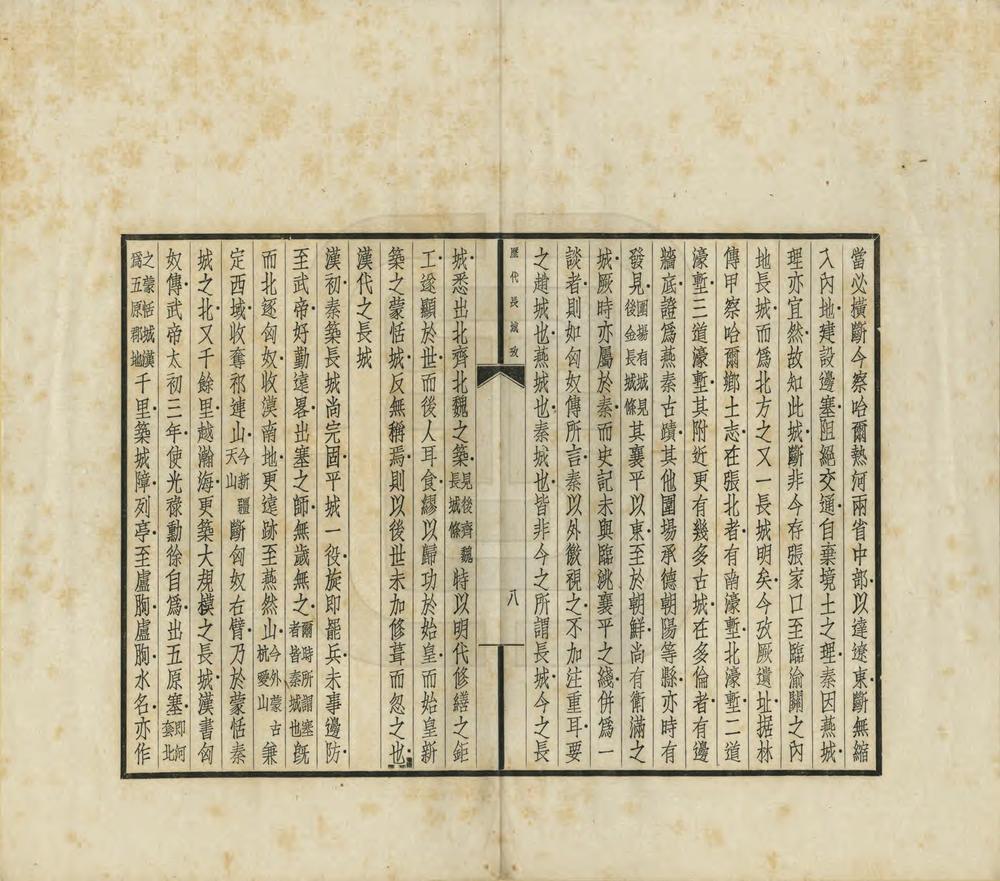 當必橫斷今察哈爾熱河兩省中部以達遼東斷無縮
入內地建設邊塞阻絕交通自棄境土之理秦因燕城
理亦宜然故知此城斷非今存張家口至臨渝關之內
地長城而爲北方之又一長城明矣今攷厥遺址据林
傳甲察哈爾鄉土志在張北者有南濠塹北濠塹二道
濠塹三道濠塹其附近更有幾多古城在多倫者有邊
牆底證爲燕秦古蹟其他圍場承德朝陽等縣亦時有
發見圍場有城見後金長城條其襄平以東至於朝鮮尚有衛滿之
城厥時亦屬於秦而史記未與臨洮襄平之綫併爲一
談者則如匈奴傳所言秦以外徼視之不加注重耳要
之趙城也燕城也秦城也皆非今之所謂長城今之長
歷代長城攷
八
城悉出北齊北魏之築見後齊魏長城條特以明代修繕之鉅
工遂顯於世而後人耳食繆以歸功於始皇而始皇新
築之蒙恬城反無稱焉則以後世未加修葺而忽之也
漢代之長城
漢初秦築長城尚完固平城一役旋即罷兵未事邊防
至武帝好勤遠畧出塞之師無歲無之爾時所謂塞者皆秦城也旣
而北逐匈奴收漠南地更遠跡至燕然山今外蒙古杭愛山兼
定西域收奪祁連山今新疆天山斷匈奴右臂乃於蒙恬秦
城之北又千餘里越瀚海更築大規模之長城漢書匈
奴傳武帝太初三年使光祿勳徐自爲出五原塞即河套北
之蒙恬城漢爲五原郡地千里築城障列亭至盧朐盧朐水名亦作